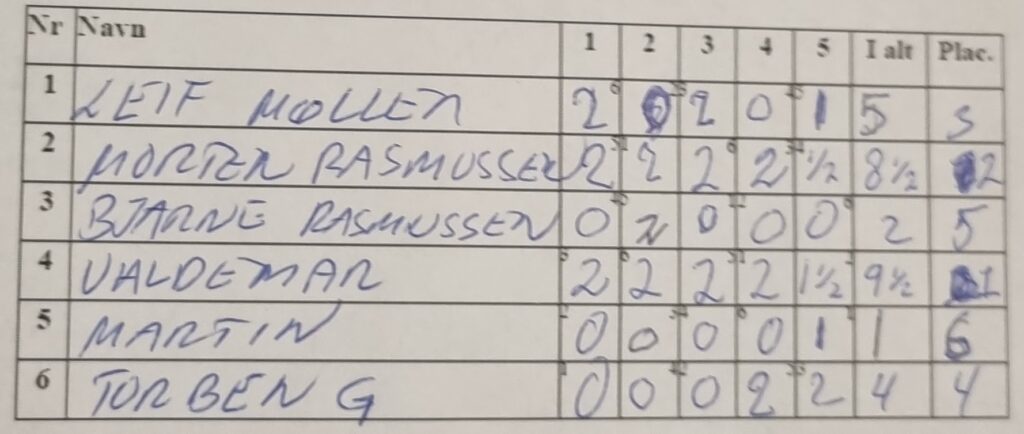 Nr Navn 1 2 3 4 5 I alt Plac.
1 LEIF MØLLER 2 0 2 0 1 5 3
2 MORTEN RASMUSSEN 2 2 2 2 ½ 8½ 2
3 BJARNE RASMUSSEN 0 2 0 0 0 2 5
4 VALDEMAR 2 2 2 2 1½ 9½ 1
5 MARTIN 0 0 0 0 1 1 6
6 TORBEN G 0 0 0 2 2 4 4